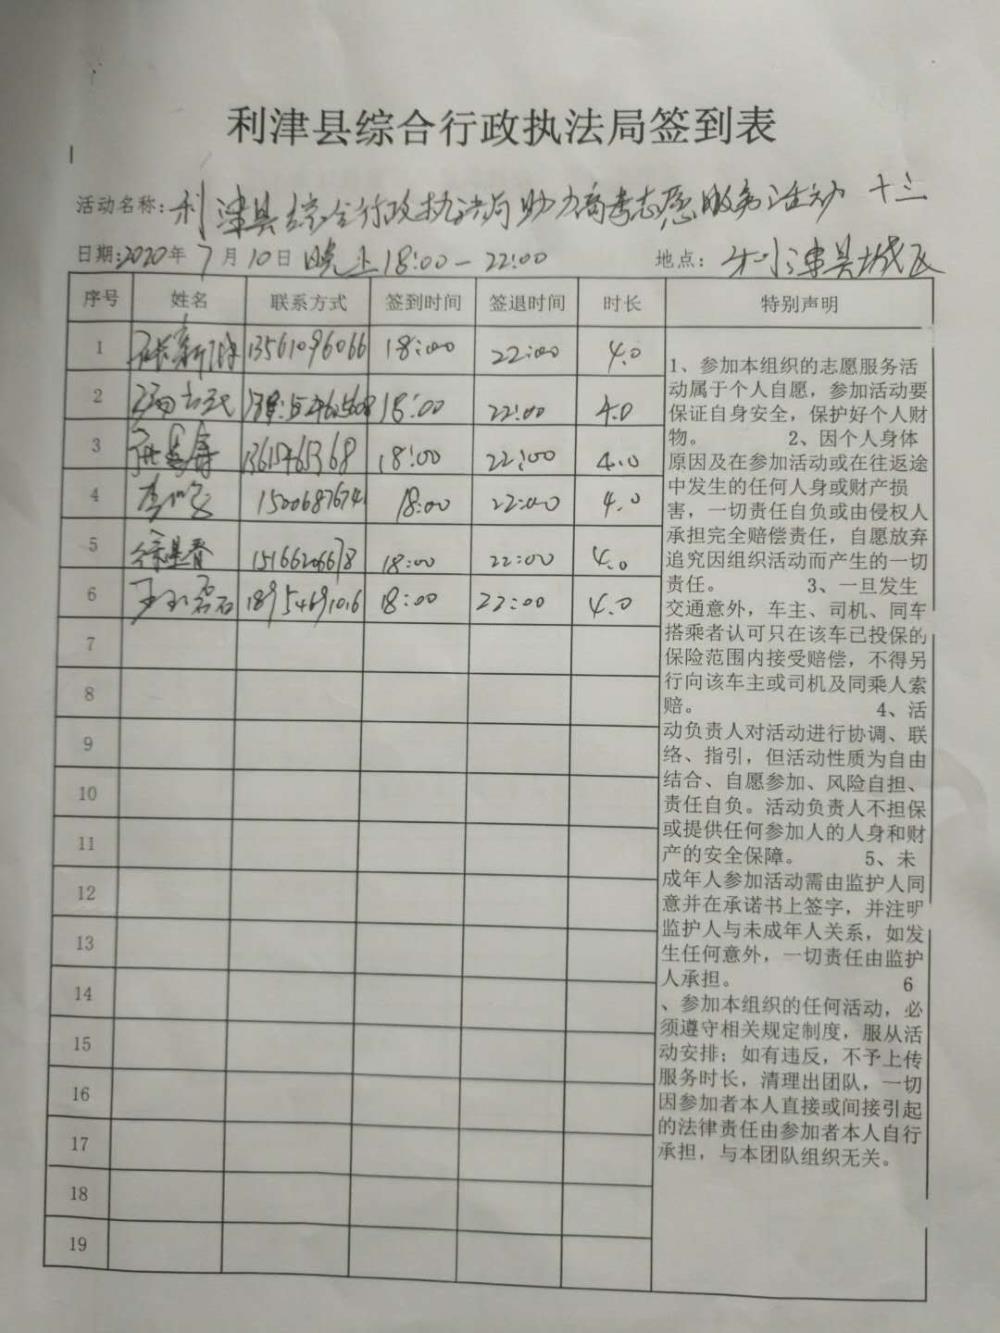 利津县综合行政执法局签到表
活动名称:利津县综合行政执法局助力高考志愿服务活动 十三
日期:2020年7月10日晚上18:00-22:00 地点:利津县城区
序号 姓名 联系方式 签到时间 签退时间 时长 特别声明
1 13561096066 18:00 22:00 4.0
2 18:00 22:00 4.0
3 13615465368 18:00 22:00 4.0
4 15006876741 18:00 22:00 4.0
5 15166206678 18:00 22:00 4.0
6 王玉磊 18954691016 18:00 22:00 4.0
7
8
9
10
11
12
13
14
15
16
17
18
19
1、参加本组织的志愿服务活
动属于个人自愿,参加活动要
保证自身安全,保护好个人财
物。 2、因个人身体
原因及在参加活动或在往返途
中发生的任何人身或财产损
害,一切责任自负或由侵权人
承担完全赔偿责任,自愿放弃
追究因组织活动而产生的一切
责任。 3、一旦发生
交通意外,车主、司机、同车
搭乘者认可只在该车已投保的
保险范围内接受赔偿,不得另
行向该车主或司机及同乘人索
赔。 4、活
动负责人对活动进行协调、联
络、指引,但活动性质为自由
结合、自愿参加、风险自担、
责任自负。活动负责人不担保
或提供任何参加人的人身和财
产的安全保障。 5、未
成年人参加活动需由监护人同
意并在承诺书上签字,并注明
监护人与未成年人关系,如发
生任何意外,一切责任由监护
人承担。 6
、参加本组织的任何活动,必
须遵守相关规定制度,服从活
动安排;如有违反,不予上传
服务时长,清理出团队,一切
因参加者本人直接或间接引起
的法律责任由参加者本人自行
承担,与本团队组织无关。